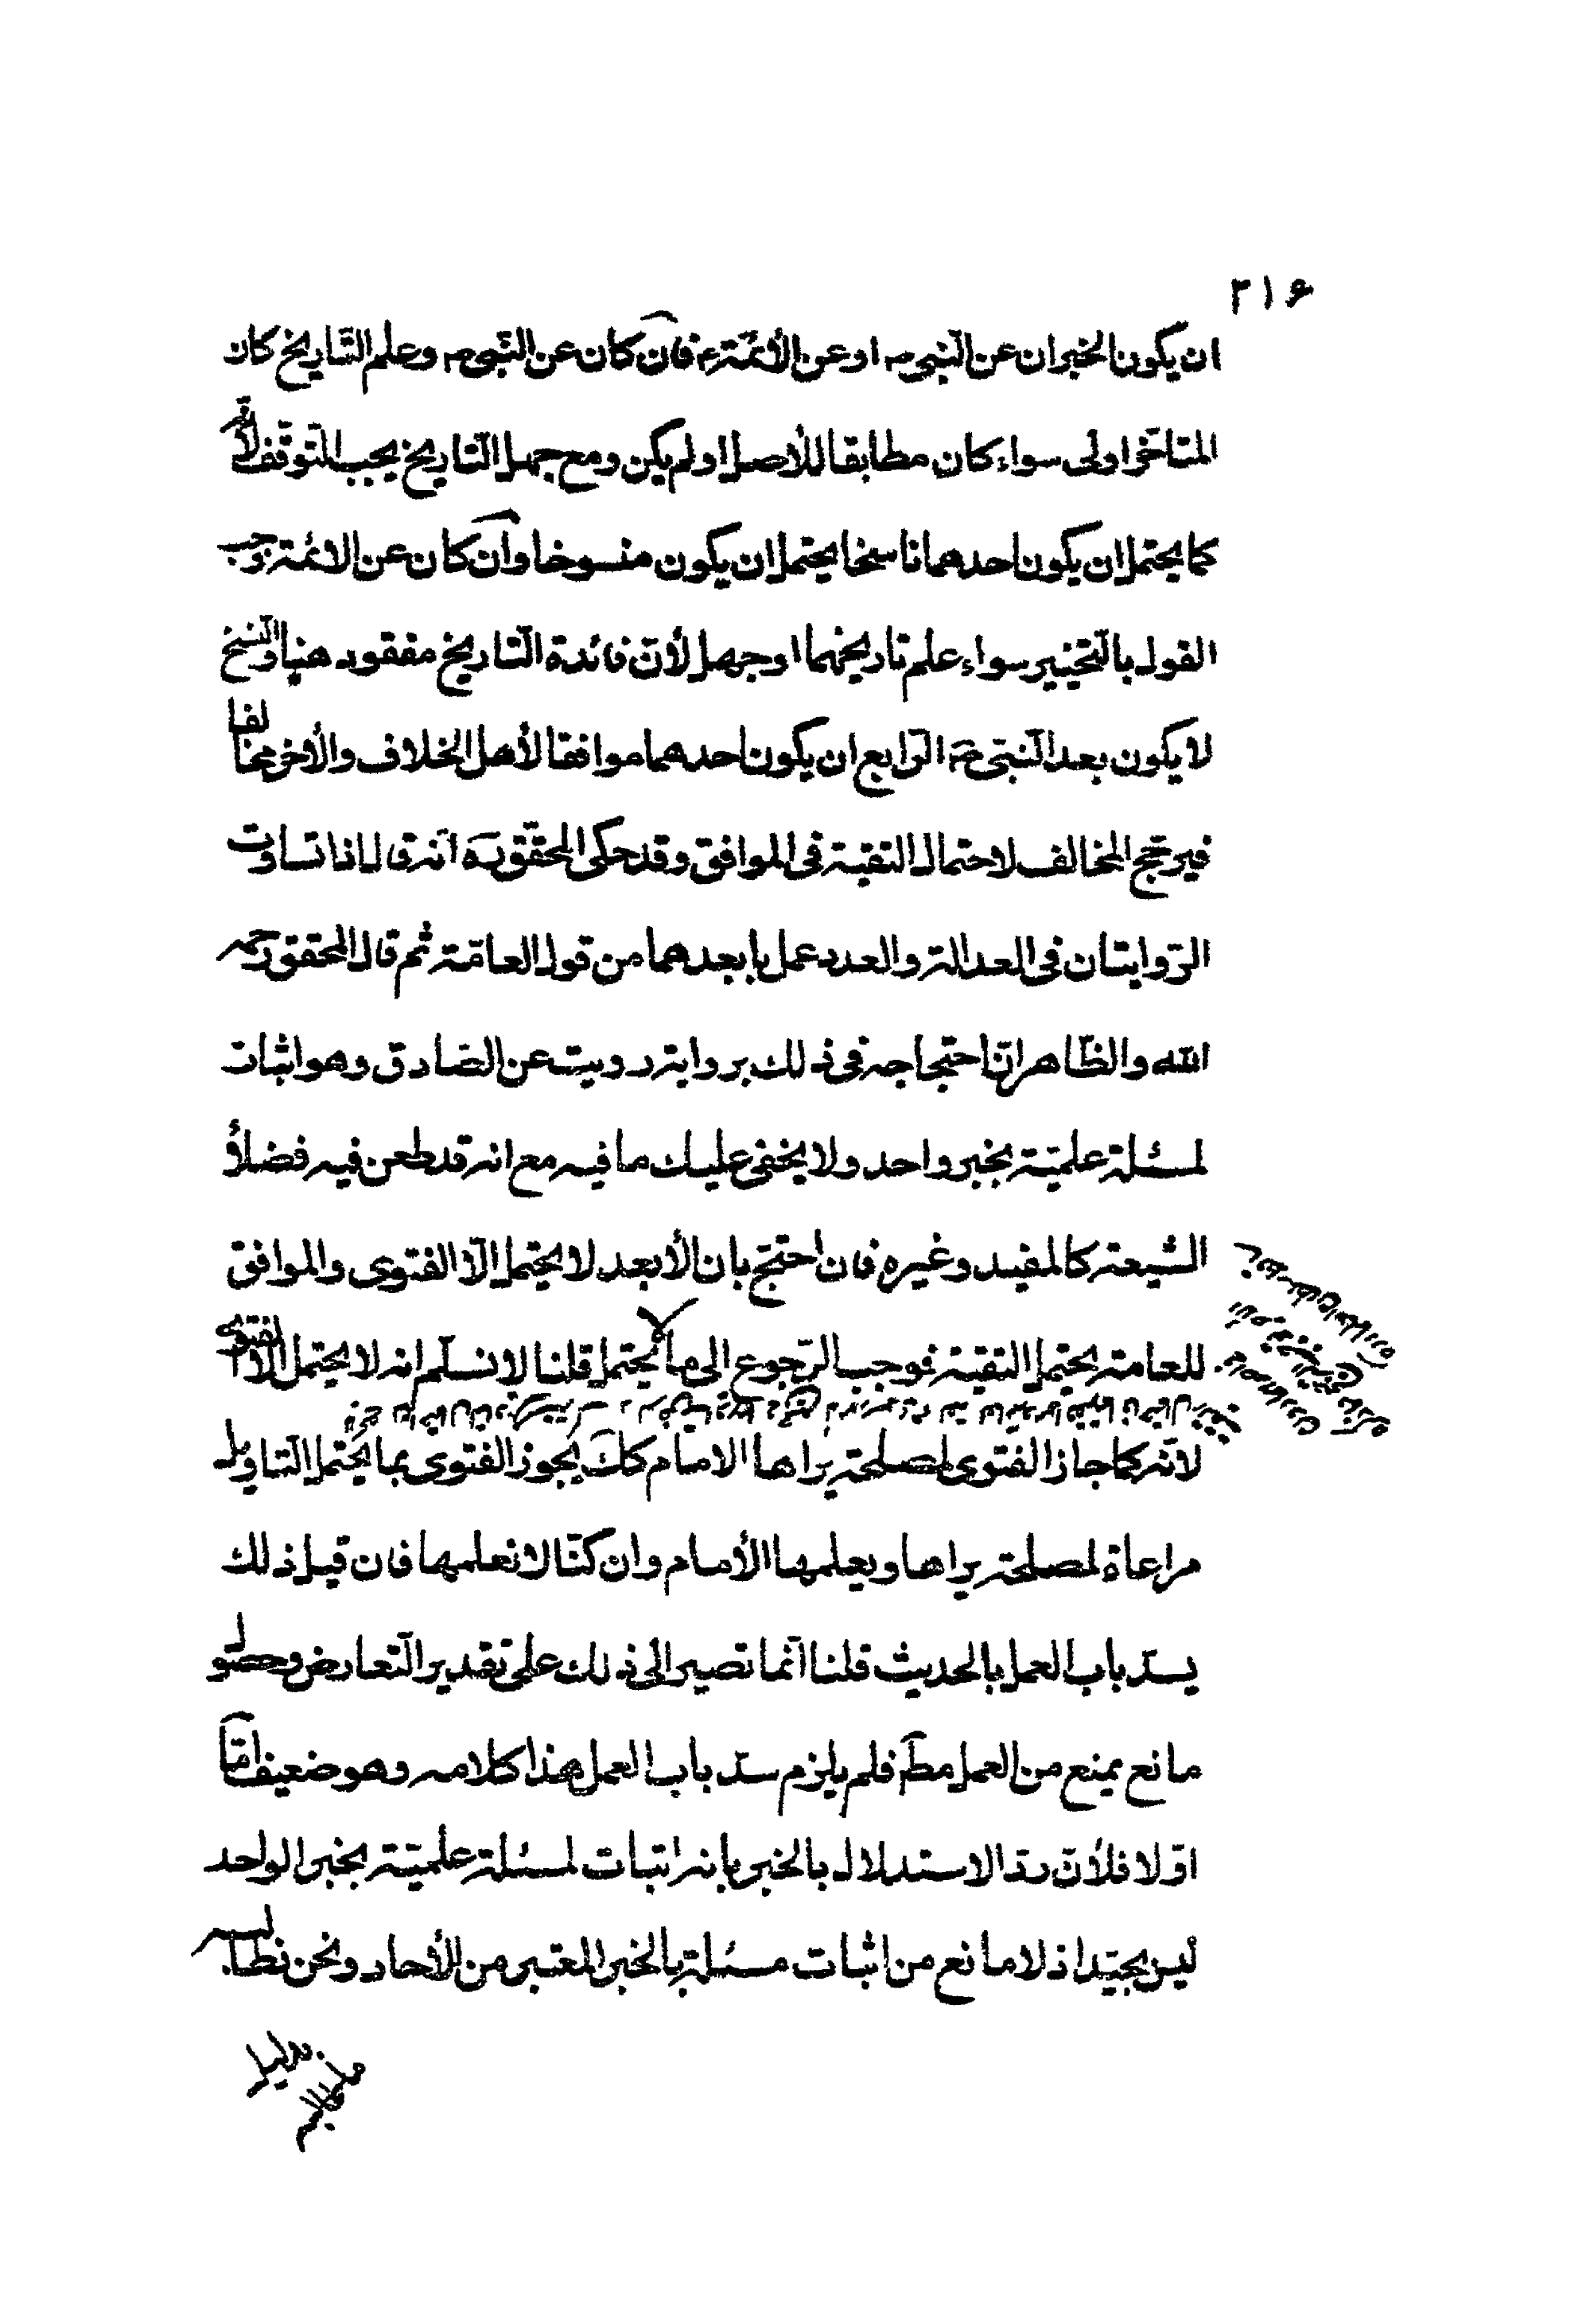 ۲۱۶
ان يكون الخبران عن النّبىّ ص او عن الأئمّة ع فان كان عن النّبىّ ص وعلم التّاريخ كان
المتاخّر اولى سواء كان مطابقا للأصل او لم يكن ومع جهل التّاريخ يجب التّوقّف لأنّه
كما يحتمل ان يكون احدهما ناسخا يحتمل ان يكون منسوخا وان كان عن الائمة وجب
القول بالتّخيير سواء علم تاريخهما او جهل لأنّ فائدة التّاريخ مفقود هنا والنّسخ
لا يكون بعد النّبىّ ص الرّابع ان يكون احدهما موافقا لأهل الخلاف والأخر مخالفا
فيرجّح المخالف لاحتمال التقيّة فى الموافق وقد حكى المحقّق ره انّه قال اذا تساوت
الرّوايتان فى العدالة والعدد عمل بابعدهما من قول العامّة ثم قال المحقق رحمه
الله والظّاهر انّ احتجاجه فى ذلك برواية رويت عن الصّادق وهو اثبات
لمسئلة علميّة بخبر واحد ولا يخفى عليك ما فيه مع انه قد طعن فيه فضلاؤ
الشّيعة كالمفيد وغيره فان احتجّ بان الأبعد لا يحتمل الّا الفتوى والموافق
للعامة يحتمل التقية فوجب الرّجوع الى ما لا يحتمل قلنا لا نسلّم انه لا يحتمل الّا الفتوى
لأنّه كما جاز الفتوى لمصلحة يراها الامام كك يجوز الفتوى بما يحتمل التّاويل
مراعاة لمصلحة يراها ويعلمها الأمام وان كنّا لا نعلمها فان قيل ذلك
يسدّ باب العمل بالحديث قلنا انّما نصير الى ذلك على تقدير التّعارض وحصول
مانع يمنع من العمل مط فلم يلزم سدّ باب العمل هذا كلامه وهو ضعيف امّا
اوّلا فلأنّ ردّ الاستدلال بالخبر بانه اثبات لمسئلة علميّة بخبر الواحد
ليس بجيّد اذ لا مانع من اثبات مسئلة بالخبر المعتبر من الأحاد ونحن نطالبه